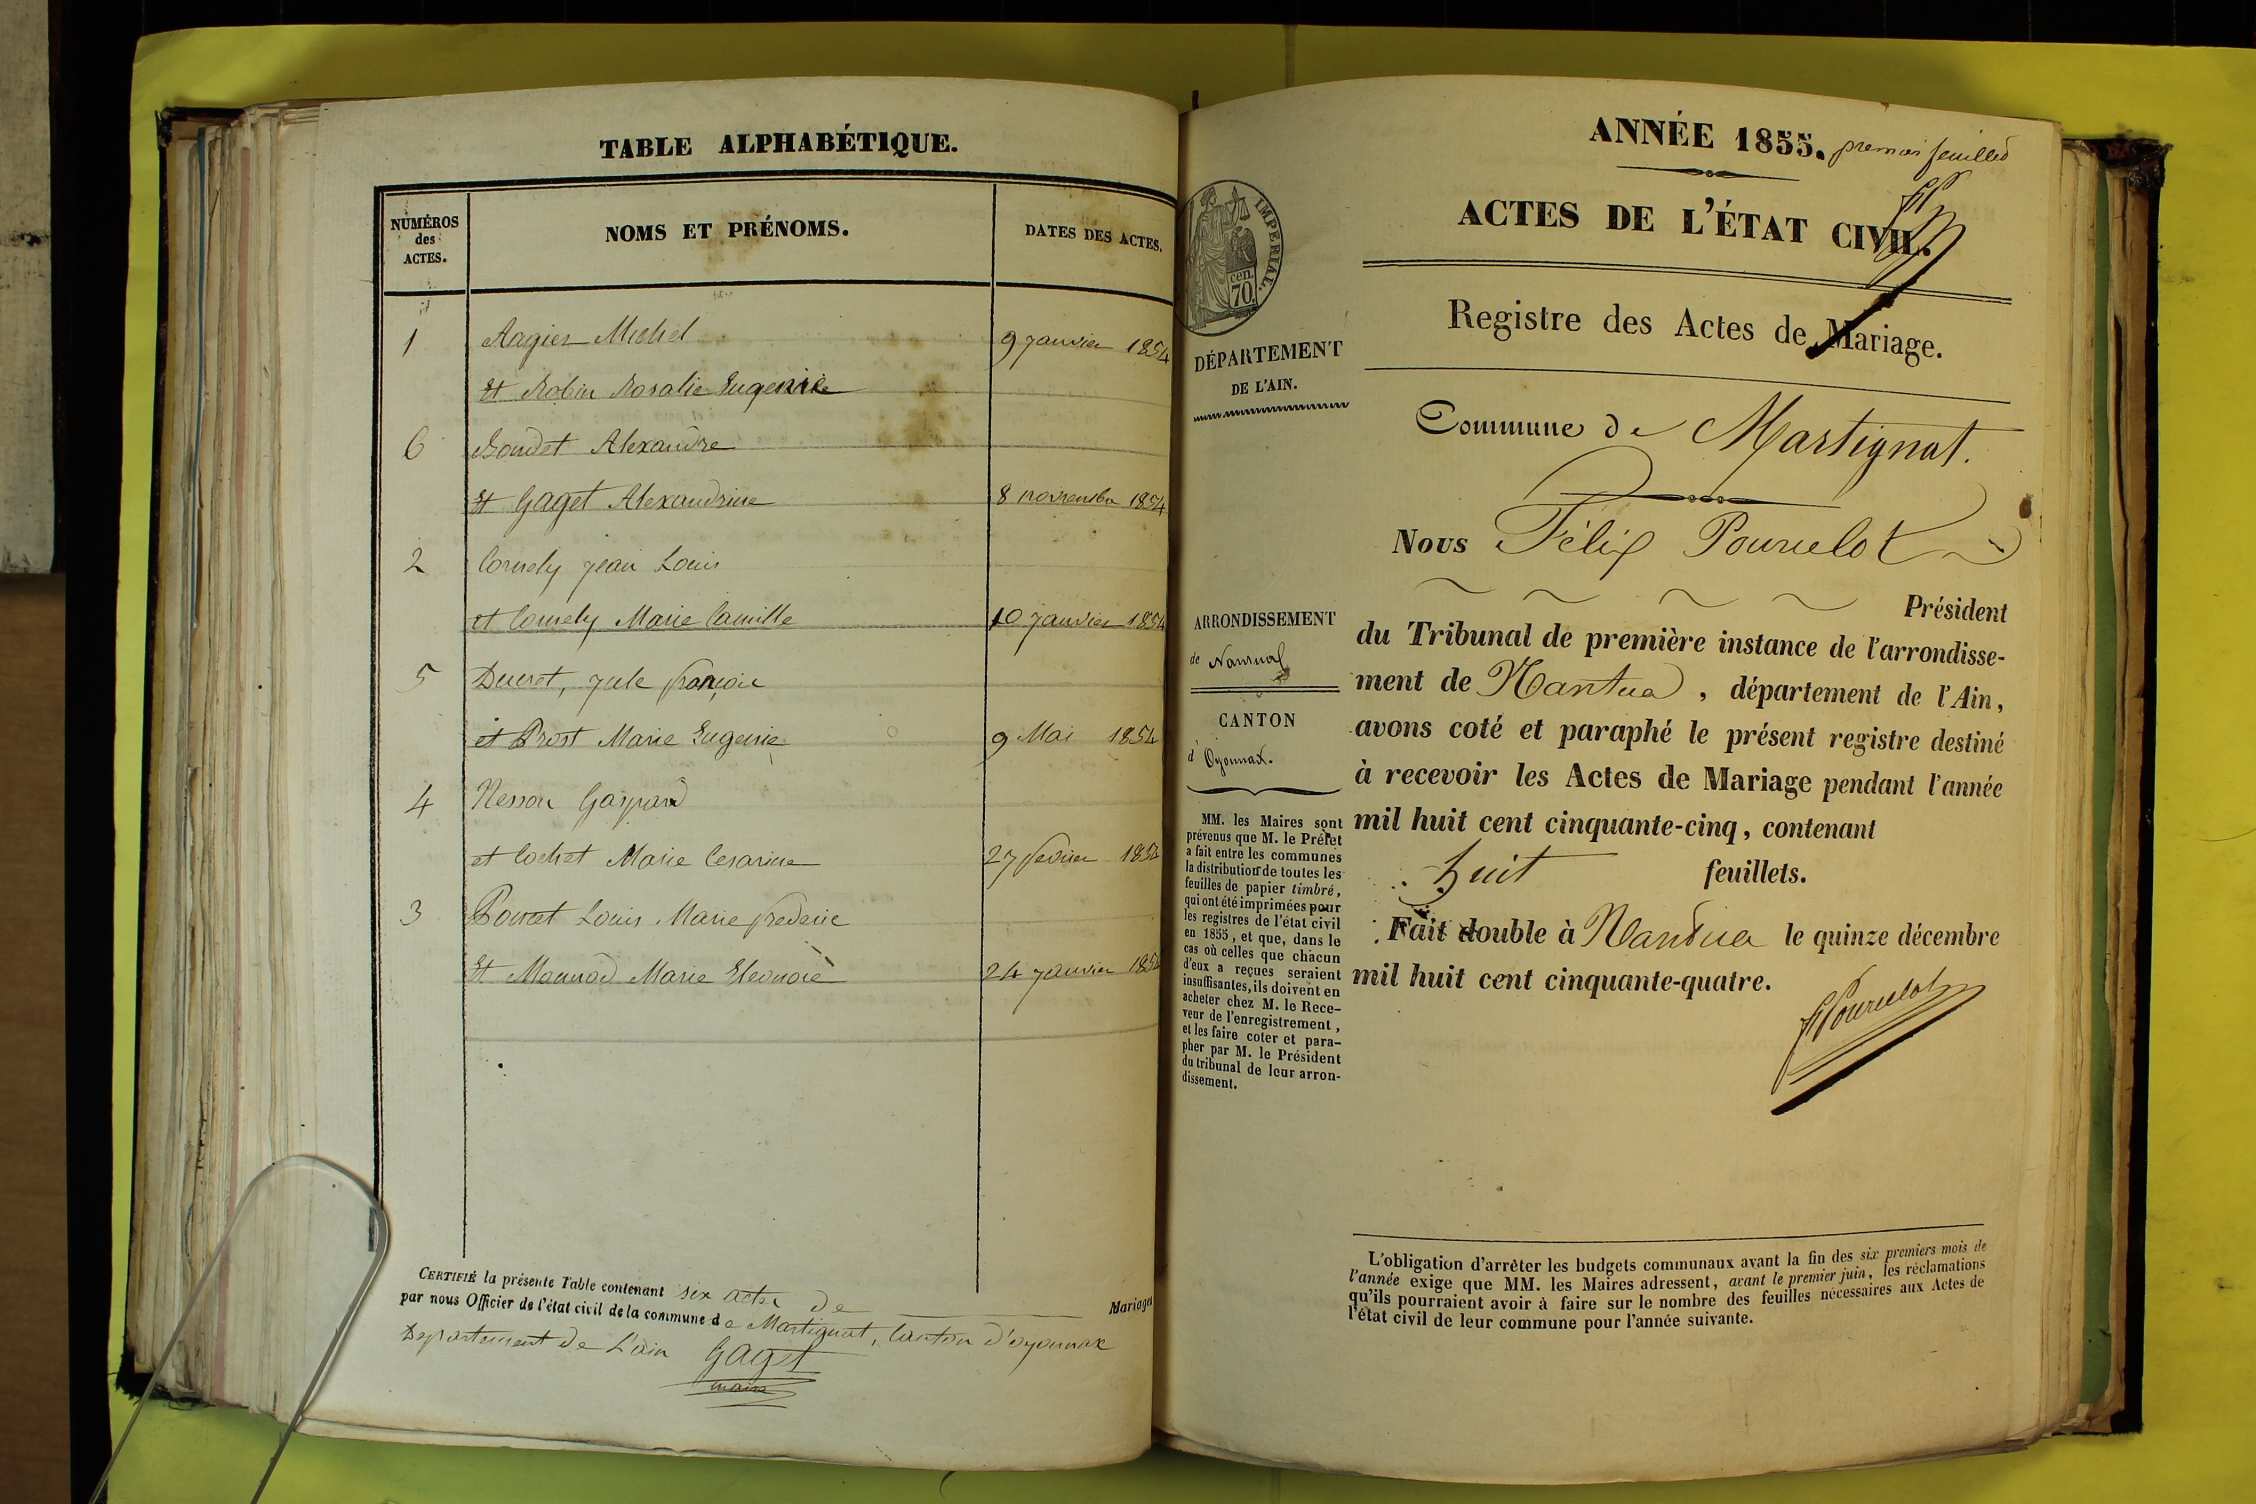 TABLE ALPHABÉTIQUE.
NUMÉROS
des
ACTES.
NOMS ET PRÉNOMS.
DATES DES ACTES.
1 Michel 9 Janvier 1854
Et Robin Rosalie Eugenie
6 Alexandre
Et Gaget Alexandrine 8 novembre 1854
2 Cornely Jean Louis
et Cornely Marie Camille 10 Janvier 1854
5 Ducret, Jule françois
et Prost Marie Eugenie 9 Mai 1854
4 Gaspard
et Cochet Marie Cesarine 27 fevrier 1854
3 Poncet Louis Marie frederic
Et Marie Eleonore 24 Janvier 1854
CERTIFIÉ la présente Table contenant six actes de Mariages
par nous Officier de l'état civil de la commune de Martignat, Canton d'oyonnax
Departement de L'ain
Gaget
maire
ANNÉE 1855. premier feuillet
ACTES DE L'ÉTAT CIVIL.
Registre des Actes de Mariage.
IMPERIAL.
cen.
70.
DÉPARTEMENT
DE L'AIN.
ARRONDISSEMENT
de Nantua
CANTON
d'Oyonnax.
MM. les Maires sont
prévenus que M. le Préfet
a fait entre les communes
la distribution de toutes les
feuilles de papier timbré,
qui ont été imprimées pour
les registres de l'état civil
en 1855, et que, dans le
cas où celles que chacun
d'eux a reçues seraient
insuffisantes, ils doivent en
acheter chez M. le Rece-
veur de l'enregistrement,
et les faire coter et para-
pher par M. le Président
du tribunal de leur arron-
dissement.
Commune de Martignat.
Nous Félix Pourcelot
Président
du Tribunal de première instance de l'arrondisse-
ment de Nantua, département de l'Ain,
avons coté et paraphé le présent registre destiné
à recevoir les Actes de Mariage pendant l'année
mil huit cent cinquante-cinq, contenant
huit feuillets.
Fait double à Nantua le quinze décembre
mil huit cent cinquante-quatre.
Pourcelot
L'obligation d'arrêter les budgets communaux avant la fin des six premiers mois de
l'année exige que MM. les Maires adressent, avant le premier juin, les réclamations
qu'ils pourraient avoir à faire sur le nombre des feuilles nécessaires aux Actes de
l'état civil de leur commune pour l'année suivante.